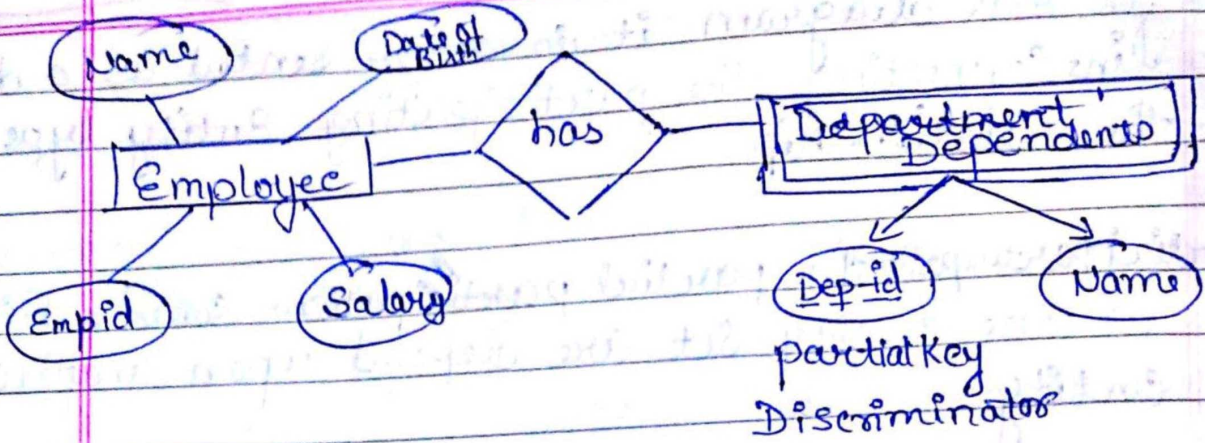 Name
Date of
Birth
has
Department
Dependents
Employee
Emp id
Salary
Dep-id
Name
partial key
Discriminator